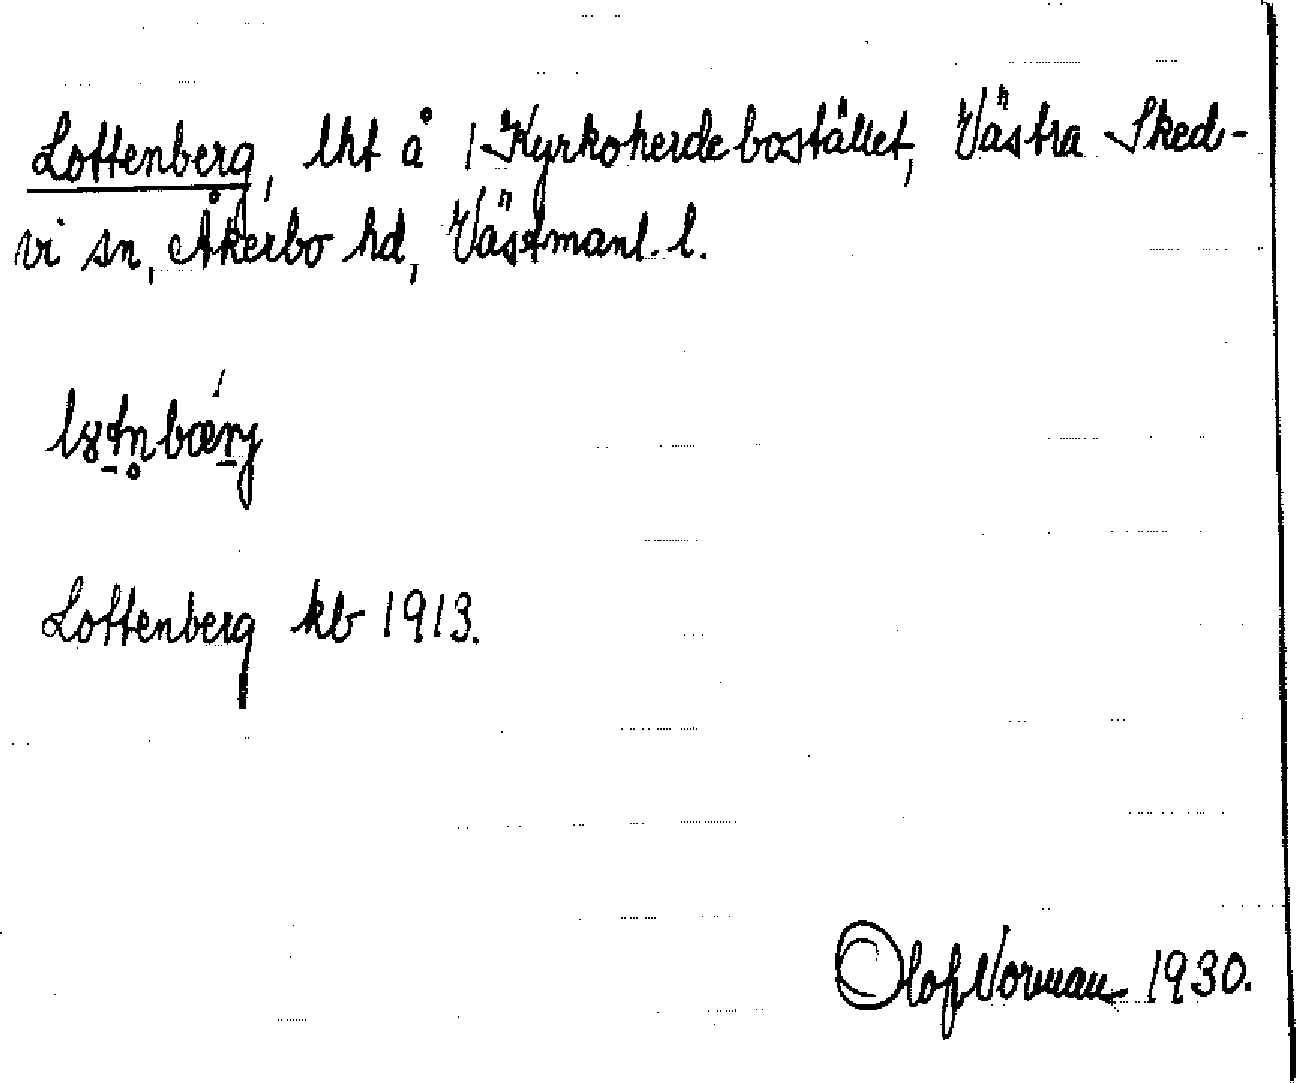 Lottenberg, lht å 1 Kyrkoherdebostället, Västra Sked-
vi sn, Åkerbo hd, Västmanl. l.
Lottenberg kb 1913.
Olof Norman 1930.